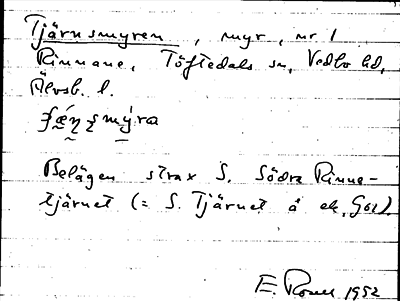 Tjärnsmyren, myr, nr 1
Rinnane, Töftedals sn, Vedbo hd,
Älvsb. l.
Belägen strax S. Södra Rinne-
tjärnet (= S. Tjärnet å ek.
E. 1952